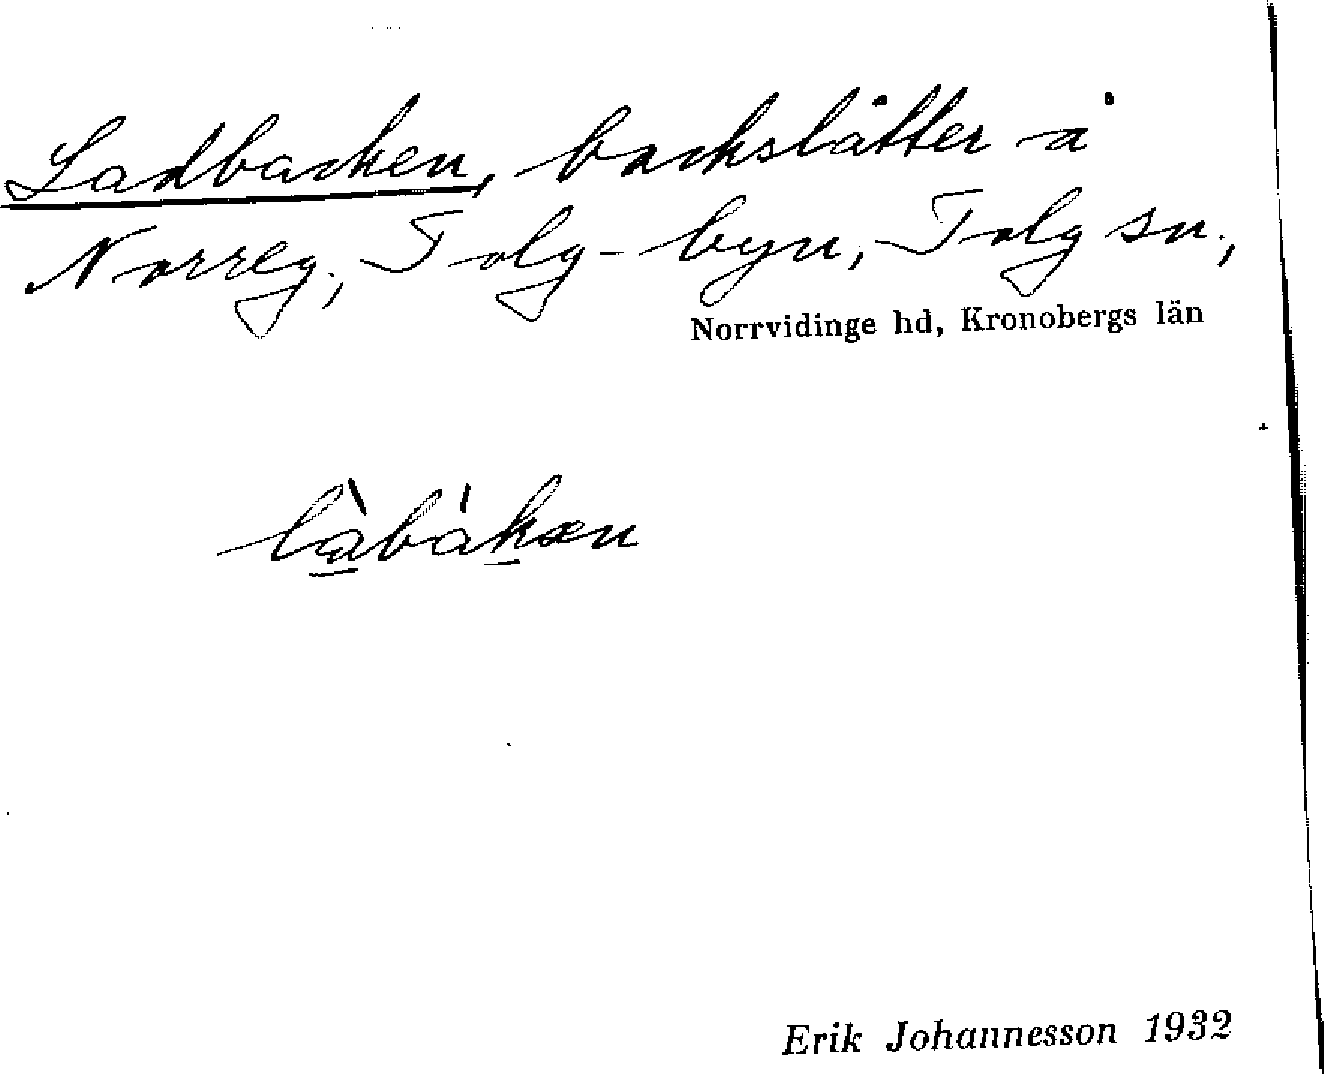 Ladbacken, backslåtter å
Norreg., Tolg-byn, Tolg sn.,
Norrvidinge hd, Kronobergs län
Erik Johannesson 1932